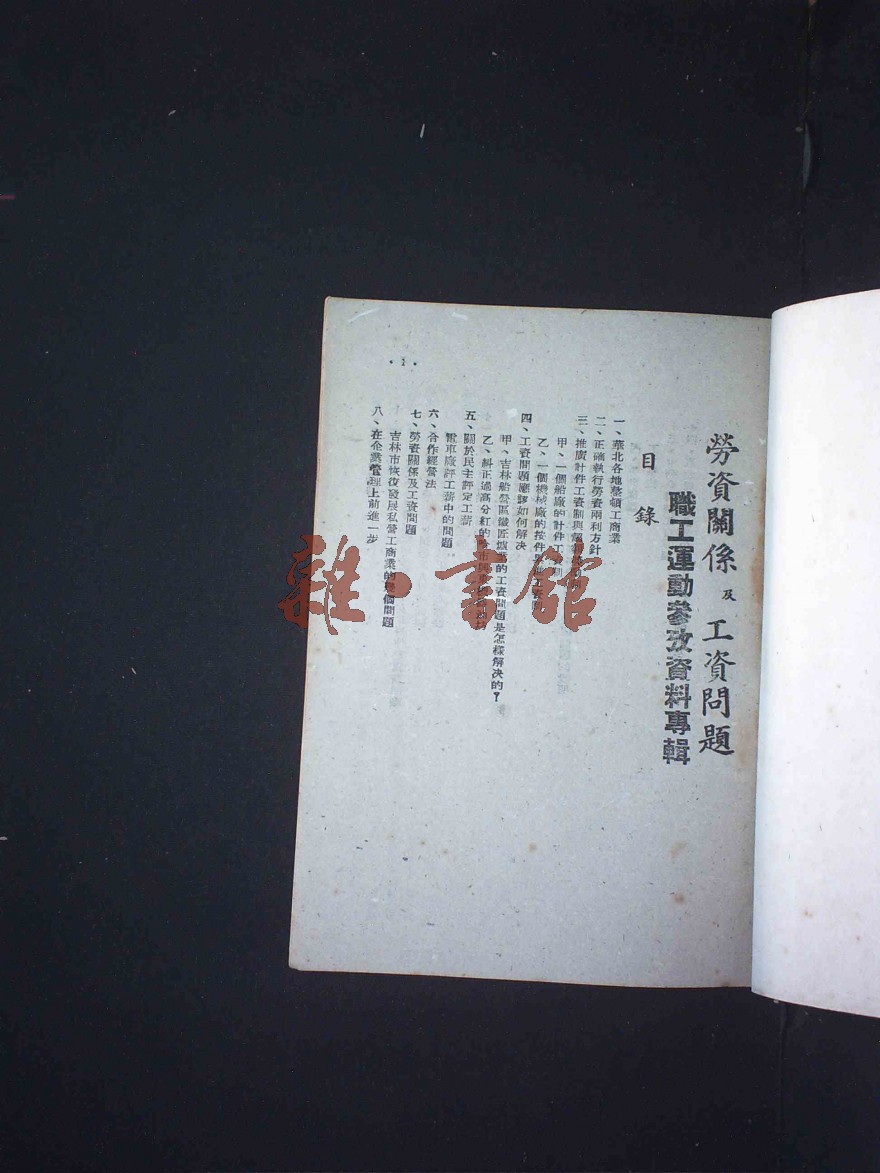 勞資關係及工資問題
職工運動參攷資料專輯
目錄
一、華北各地整頓工商業
二、正確執行勞資兩利方針
三、推廣計件工資制與
甲、一個船廠的計件
乙、一個機械廠的按件
四、工資問題應該如何解决
甲、吉林船營區鐵匠爐業的工資問題是怎樣解决的?
乙、糾正過高分紅的哈市
五、關於民主評定工薪
電車廠評工薪中的問題
六、合作經營法
七、勞資關係及工資問題
吉林市恢復發展私營工商業的幾個問題
八、在企業管理上前進一步
·1·
雜·書館